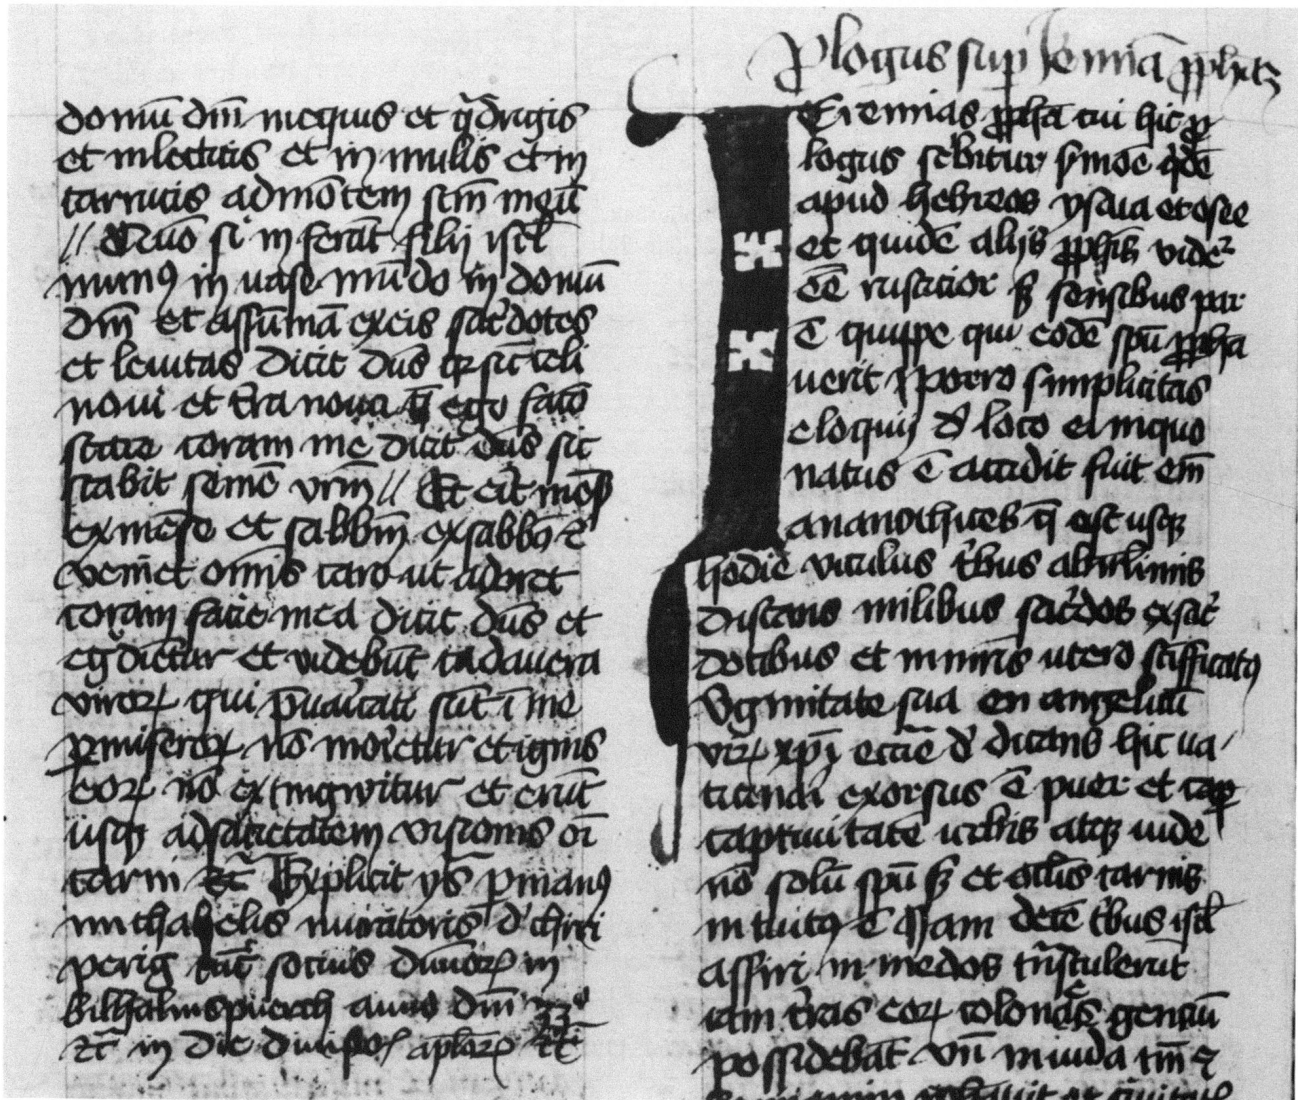 domū dm̄ in equis et q̄drigis
et in lecticis et in mulis et in
carrucis ad mōtem scm̄ meū
// Quō si inferāt filij isrl̄
munꝰ in uase mūdo in domū
dm̄ et assumā ex eis sac̉dotes
et leuitas dicit dn̄s q̄ sic̄ celi
noui et t̄ra noua q̄ ego facō
stare coram me dicit dn̄s sic
stabit semē vrm̄ // Et erit mēs
ex mēse et sabbm̄ ex sabbō ⁊
veniet om̄is caro ut adoret
coram facie mea dicit dn̄s et
eg̉diētur et videbūt cadauera
virorꝝ qui p̄uaricati sūt ī me
ꝑmis eorꝝ nō morietur et ignis
eorꝝ nō extingwitur et erūt
usqꝫ ad sacietatem visionis oī
carni Etc̄ Explicit ys̄ ꝑ manꝰ
michahelis
socius in
anno dm̄
⁊c̄ in die diuisōꝝ aplōrꝝ ⁊c̄
Plogus suꝑ Jeremiā ꝓphetā
Jeremias ꝓpha cui hic ꝓ
logus sc̉bitur s̉mōe q̉dē
apud hebreos ysaia et osee
et quidē alijs ꝓphis videt̉
eē rusticior sꝫ sensibus par
ē quippe qui eodē spū ꝓpha
uerit Porro simplicitas
eloquij d̉ loco ei in quo
natus ē accidit fuit em̄
anatothites q̄ est usqꝫ
hodie viculus t̉bus ab ihrlimis
distans milibus sac̉dos ex sac̉
dotibus et in mr̄is utero sc̄ificatꝰ
v̉ginitate sua
eccīe d̉dicans hic va
ticinari exorsus ē puer et cap
captiuitatē urbis atqꝫ iude
nō solū spū sꝫ et oculis carnis
intuitꝰ ē Jam decē t̉bus isrl̄
assirij in medos tr̄nstulerūt
iam t̄ras eorꝝ colonias genciū
possidebāt Vn̄ in iuda tm̄ ⁊
beniamin ꝓphauit et ciuitatꝭ